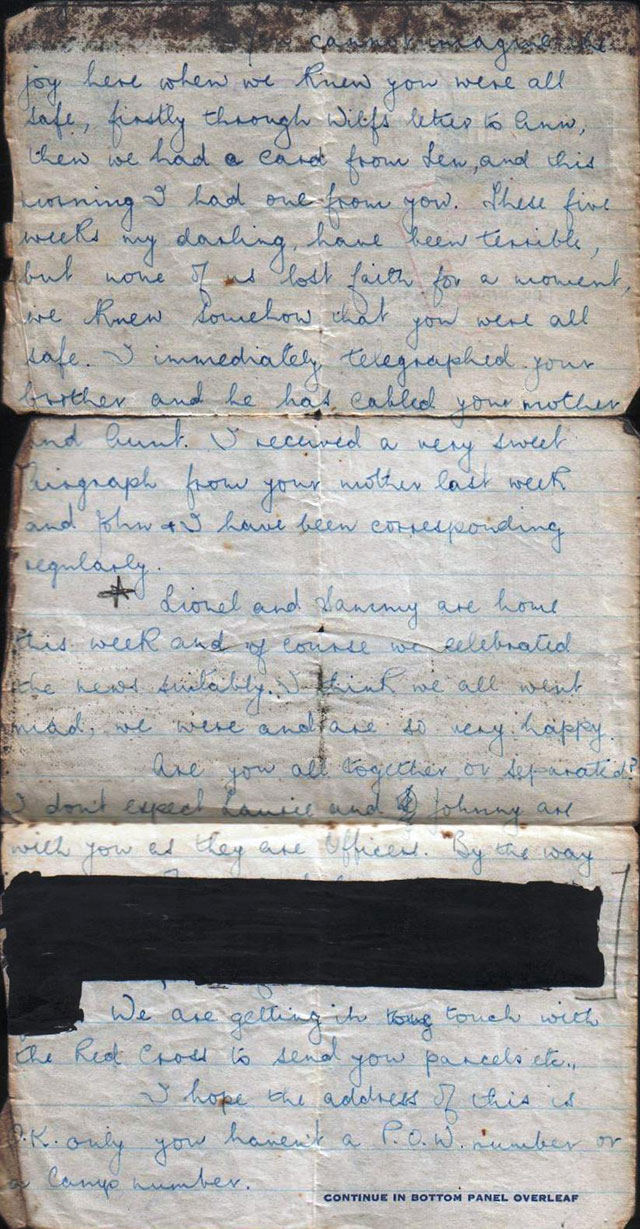 cannot imagine the
joy here when we knew you were all
safe, firstly through Wilfs letter to Ann,
then we had a card from Len, and this
morning I had one from you. These five
weeks my darling, have been terrible,
but none of us lost faith for a moment,
we knew somehow that you were all
safe. I immediately telegraphed your
brother and he has cabled your mother
and Aunt. I received a very sweet
airgraph from your mother last week
and John + I have been corresponding
regularly.
Lionel and Sammy are home
this week and of course we celebrated
the news suitably. I think we all went
mad, we were and are so very happy.
Are you all together or separated?
I don't expect Laurie and Johnny are
with you as they are Officers. By the way
We are getting in touch with
the Red Cross to send you parcels etc.,
I hope the address of this is
O.K. only you haven't a P.O.W. number or
a Camp number.
CONTINUE IN BOTTOM PANEL OVERLEAF